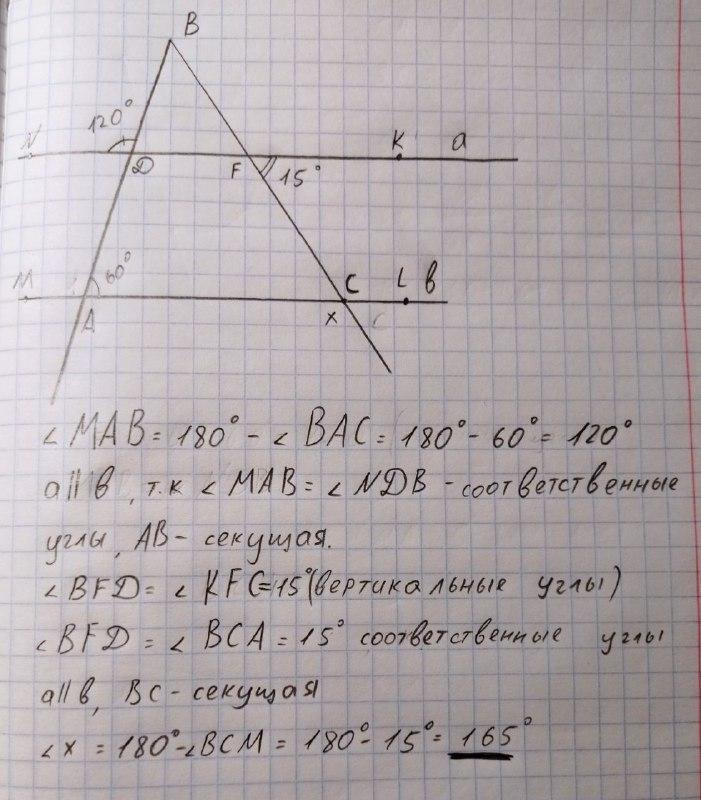 B
120°
N
K a
D F 15°
M 60° C L в
A x
∠ MAB = 180° - ∠ BAC = 180° - 60° = 120°
a || в, т.к ∠ MAB = ∠ NDB - соответственные
углы, AB - секущая.
∠ BFD = ∠ KFC = 15° (вертикальные углы)
∠ BFD = ∠ BCA = 15° соответственные углы
a || в, BC - секущая
∠ x = 180° - ∠ BCM = 180° - 15° = 165°